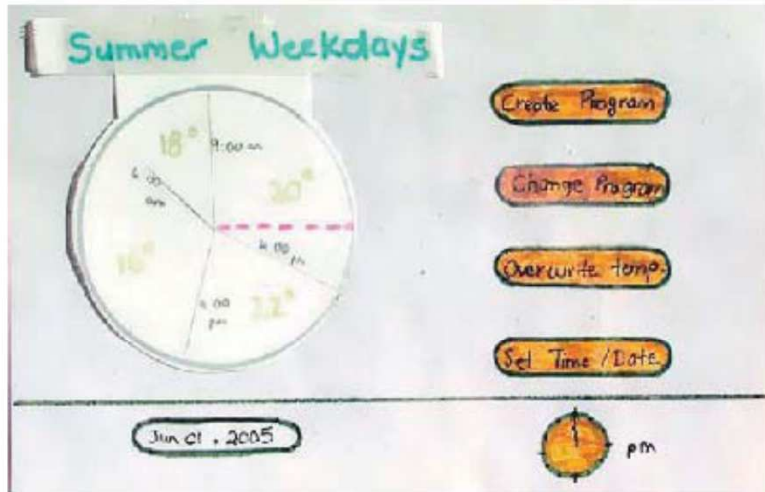 Summer Weekdays
18°
9:00 am
20°
6:00
am
16°
:00
pm
22°
Create Program
Change Program
Overwrite temp.
Set Time / Date
Jun 01, 2005
pm